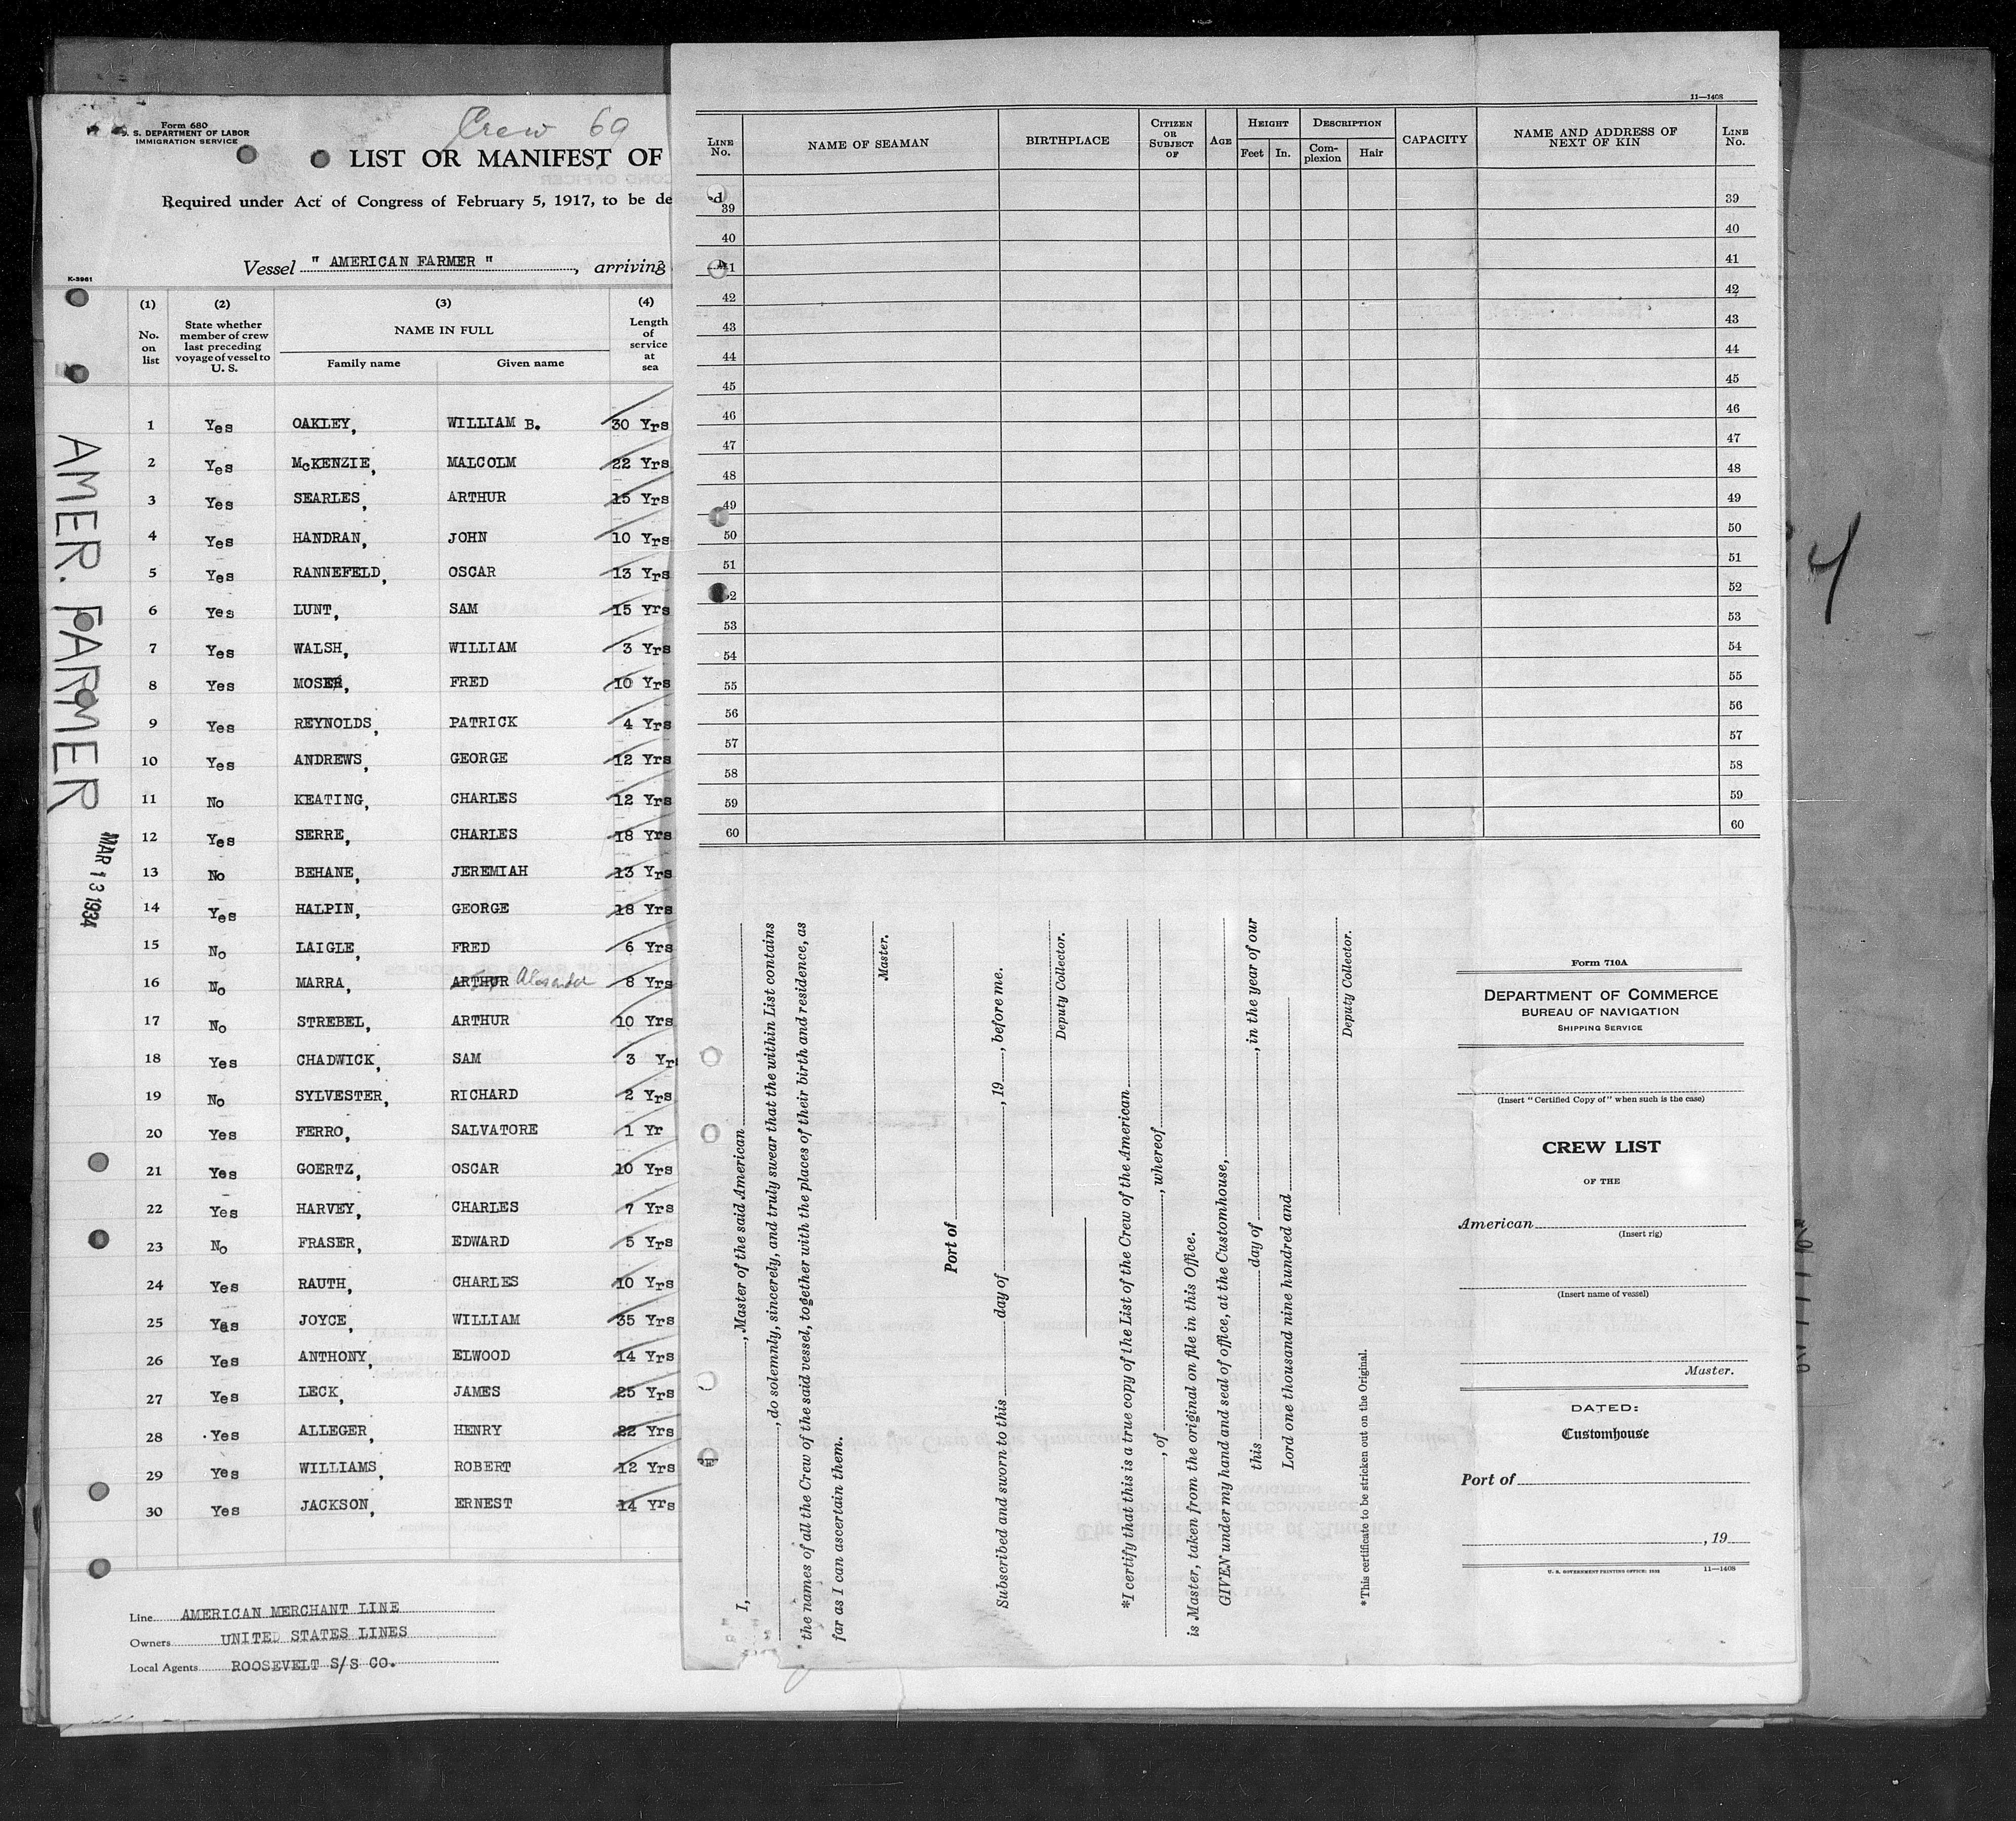 Crew 69
Form 680
U. S. DEPARTMENT OF LABOR
IMMIGRATION SERVICE
LIST OR MANIFEST OF
Required under Act of Congress of February 5, 1917, to be de
Vessel " AMERICAN FARMER " , arriving
K-3961
(1) (2) (3) (4)
No. on list
State whether member of crew last preceding voyage of vessel to U. S.
NAME IN FULL
Family name Given name
Length of service at sea
1 Yes OAKLEY, WILLIAM B. 30 Yrs
2 Yes McKENZIE, MALCOLM 22 Yrs
3 Yes SEARLES, ARTHUR 15 Yrs
4 Yes HANDRAN, JOHN 10 Yrs
5 Yes RANNEFELD, OSCAR 13 Yrs
6 Yes LUNT, SAM 15 Yrs
7 Yes WALSH, WILLIAM 3 Yrs
8 Yes MOSER, FRED 10 Yrs
9 Yes REYNOLDS, PATRICK 4 Yrs
10 Yes ANDREWS, GEORGE 12 Yrs
11 No KEATING, CHARLES 12 Yrs
12 Yes SERRE, CHARLES 18 Yrs
13 No BEHANE, JEREMIAH 13 Yrs
14 Yes HALPIN, GEORGE 18 Yrs
15 No LAIGLE, FRED 6 Yrs
16 No MARRA, ARTHUR 8 Yrs
17 No STREBEL, ARTHUR 10 Yrs
18 Yes CHADWICK, SAM 3 Yr
19 No SYLVESTER, RICHARD 2 Yrs
20 Yes FERRO, SALVATORE 1 Yr
21 Yes GOERTZ, OSCAR 10 Yrs
22 Yes HARVEY, CHARLES 7 Yrs
23 No FRASER, EDWARD 5 Yrs
24 Yes RAUTH, CHARLES 10 Yrs
25 Yes JOYCE, WILLIAM 35 Yrs
26 Yes ANTHONY, ELWOOD 14 Yrs
27 Yes LECK, JAMES 25 Yrs
28 Yes ALLEGER, HENRY 22 Yrs
29 Yes WILLIAMS, ROBERT 12 Yrs
30 Yes JACKSON, ERNEST 14 Yrs
Line AMERICAN MERCHANT LINE
Owners UNITED STATES LINES
Local Agents ROOSEVELT S/S CO.
AMER. FARMER
MAR 13 1934
11—1408
LINE No. NAME OF SEAMAN BIRTHPLACE CITIZEN OR SUBJECT OF AGE HEIGHT Feet In. DESCRIPTION Complexion Hair CAPACITY NAME AND ADDRESS OF NEXT OF KIN LINE No.
39 39
40 40
41 41
42 42
43 43
44 44
45 45
46 46
47 47
48 48
49 49
50 50
51 51
52 52
53 53
54 54
55 55
56 56
57 57
58 58
59 59
60 60
I, , Master of the said American
, do solemnly, sincerely, and truly swear that the within List contains
the names of all the Crew of the said vessel, together with the places of their birth and residence, as
far as I can ascertain them.
Master.
Port of
Subscribed and sworn to this day of , 19 , before me.
Deputy Collector.
*I certify that this is a true copy of the List of the Crew of the American
, of , whereof
is Master, taken from the original on file in this Office.
GIVEN under my hand and seal of office, at the Customhouse,
this day of , in the year of our
Lord one thousand nine hundred and
Deputy Collector.
*This certificate to be stricken out on the Original.
Form 710A
DEPARTMENT OF COMMERCE
BUREAU OF NAVIGATION
SHIPPING SERVICE
(Insert "Certified Copy of" when such is the case)
CREW LIST
OF THE
American
(Insert rig)
(Insert name of vessel)
Master.
DATED:
Customhouse
Port of
, 19
U. S. GOVERNMENT PRINTING OFFICE: 1932 11—1408
4